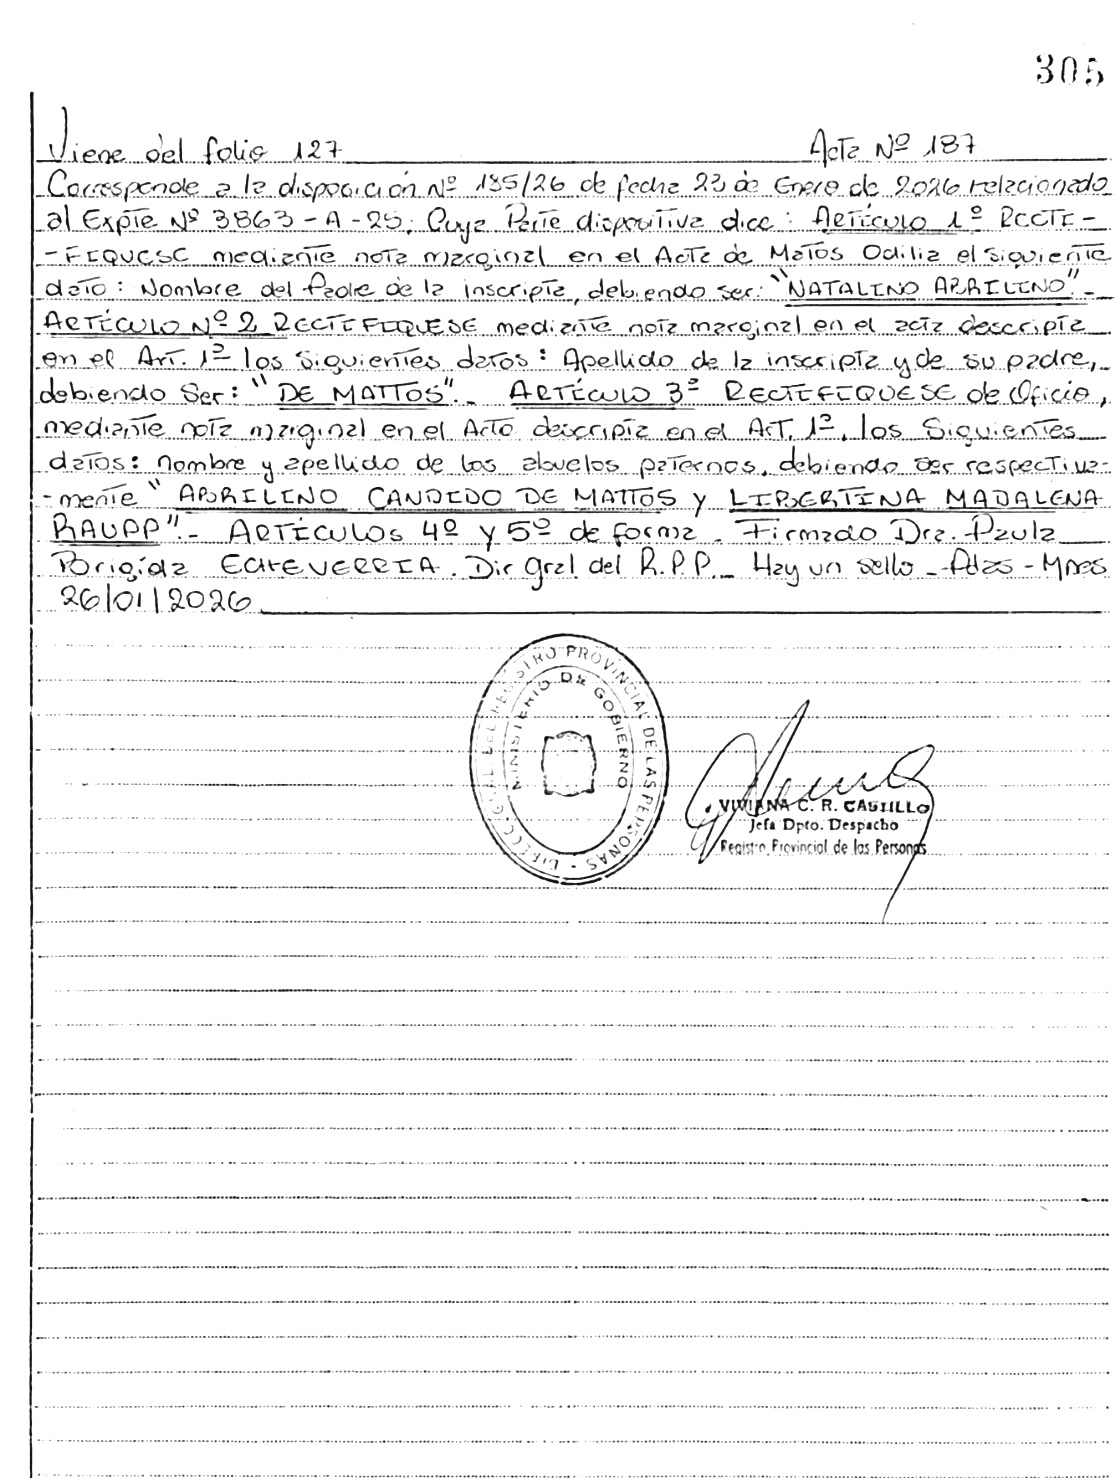 305
Viene del folio 127 Acta Nº 187
Corresponde a la disposición Nº 185/26 de fecha 23 de Enero de 2026 relacionado
al Expte Nº 3863-A-25. Cuya Parte dispositiva dice: ARTÍCULO 1º RECTI-
-FIQUESE mediante nota marginal en el Acta de Matos Odilia el siguiente
dato: Nombre del Padre de la inscripta, debiendo ser: "NATALINO ABRILINO".-
ARTÍCULO Nº 2 RECTIFIQUESE mediante nota marginal en el acta descripta
en el Art. 1º los siguientes datos: Apellido de la inscripta y de su padre,-
debiendo Ser: "DE MATTOS".- ARTÍCULO 3º RECTIFIQUESE de Oficio,
mediante nota marginal en el Acto descripta en el Art. 1º, los Siguientes
datos: nombre y apellido de los abuelos paternos, debiendo ser respectiva-
-mente "ABRILINO CANDIDO DE MATTOS y LIBERTINA MADALENA
RAUPP".- ARTÍCULOS 4º y 5º de forma. Firmado Dra. Paula
Brigida ECHEVERRIA. Dir Gral del R.P.P.- Hay un sello - Pdas - Mnes
26/01/2026
DIRECC. GRAL. DEL REGISTRO PROVINCIAL DE LAS PERSONAS -
MINISTERIO DE GOBIERNO
VIVIANA C. R. CASTILLO
Jefa Dpto. Despacho
Registro Provincial de las Personas